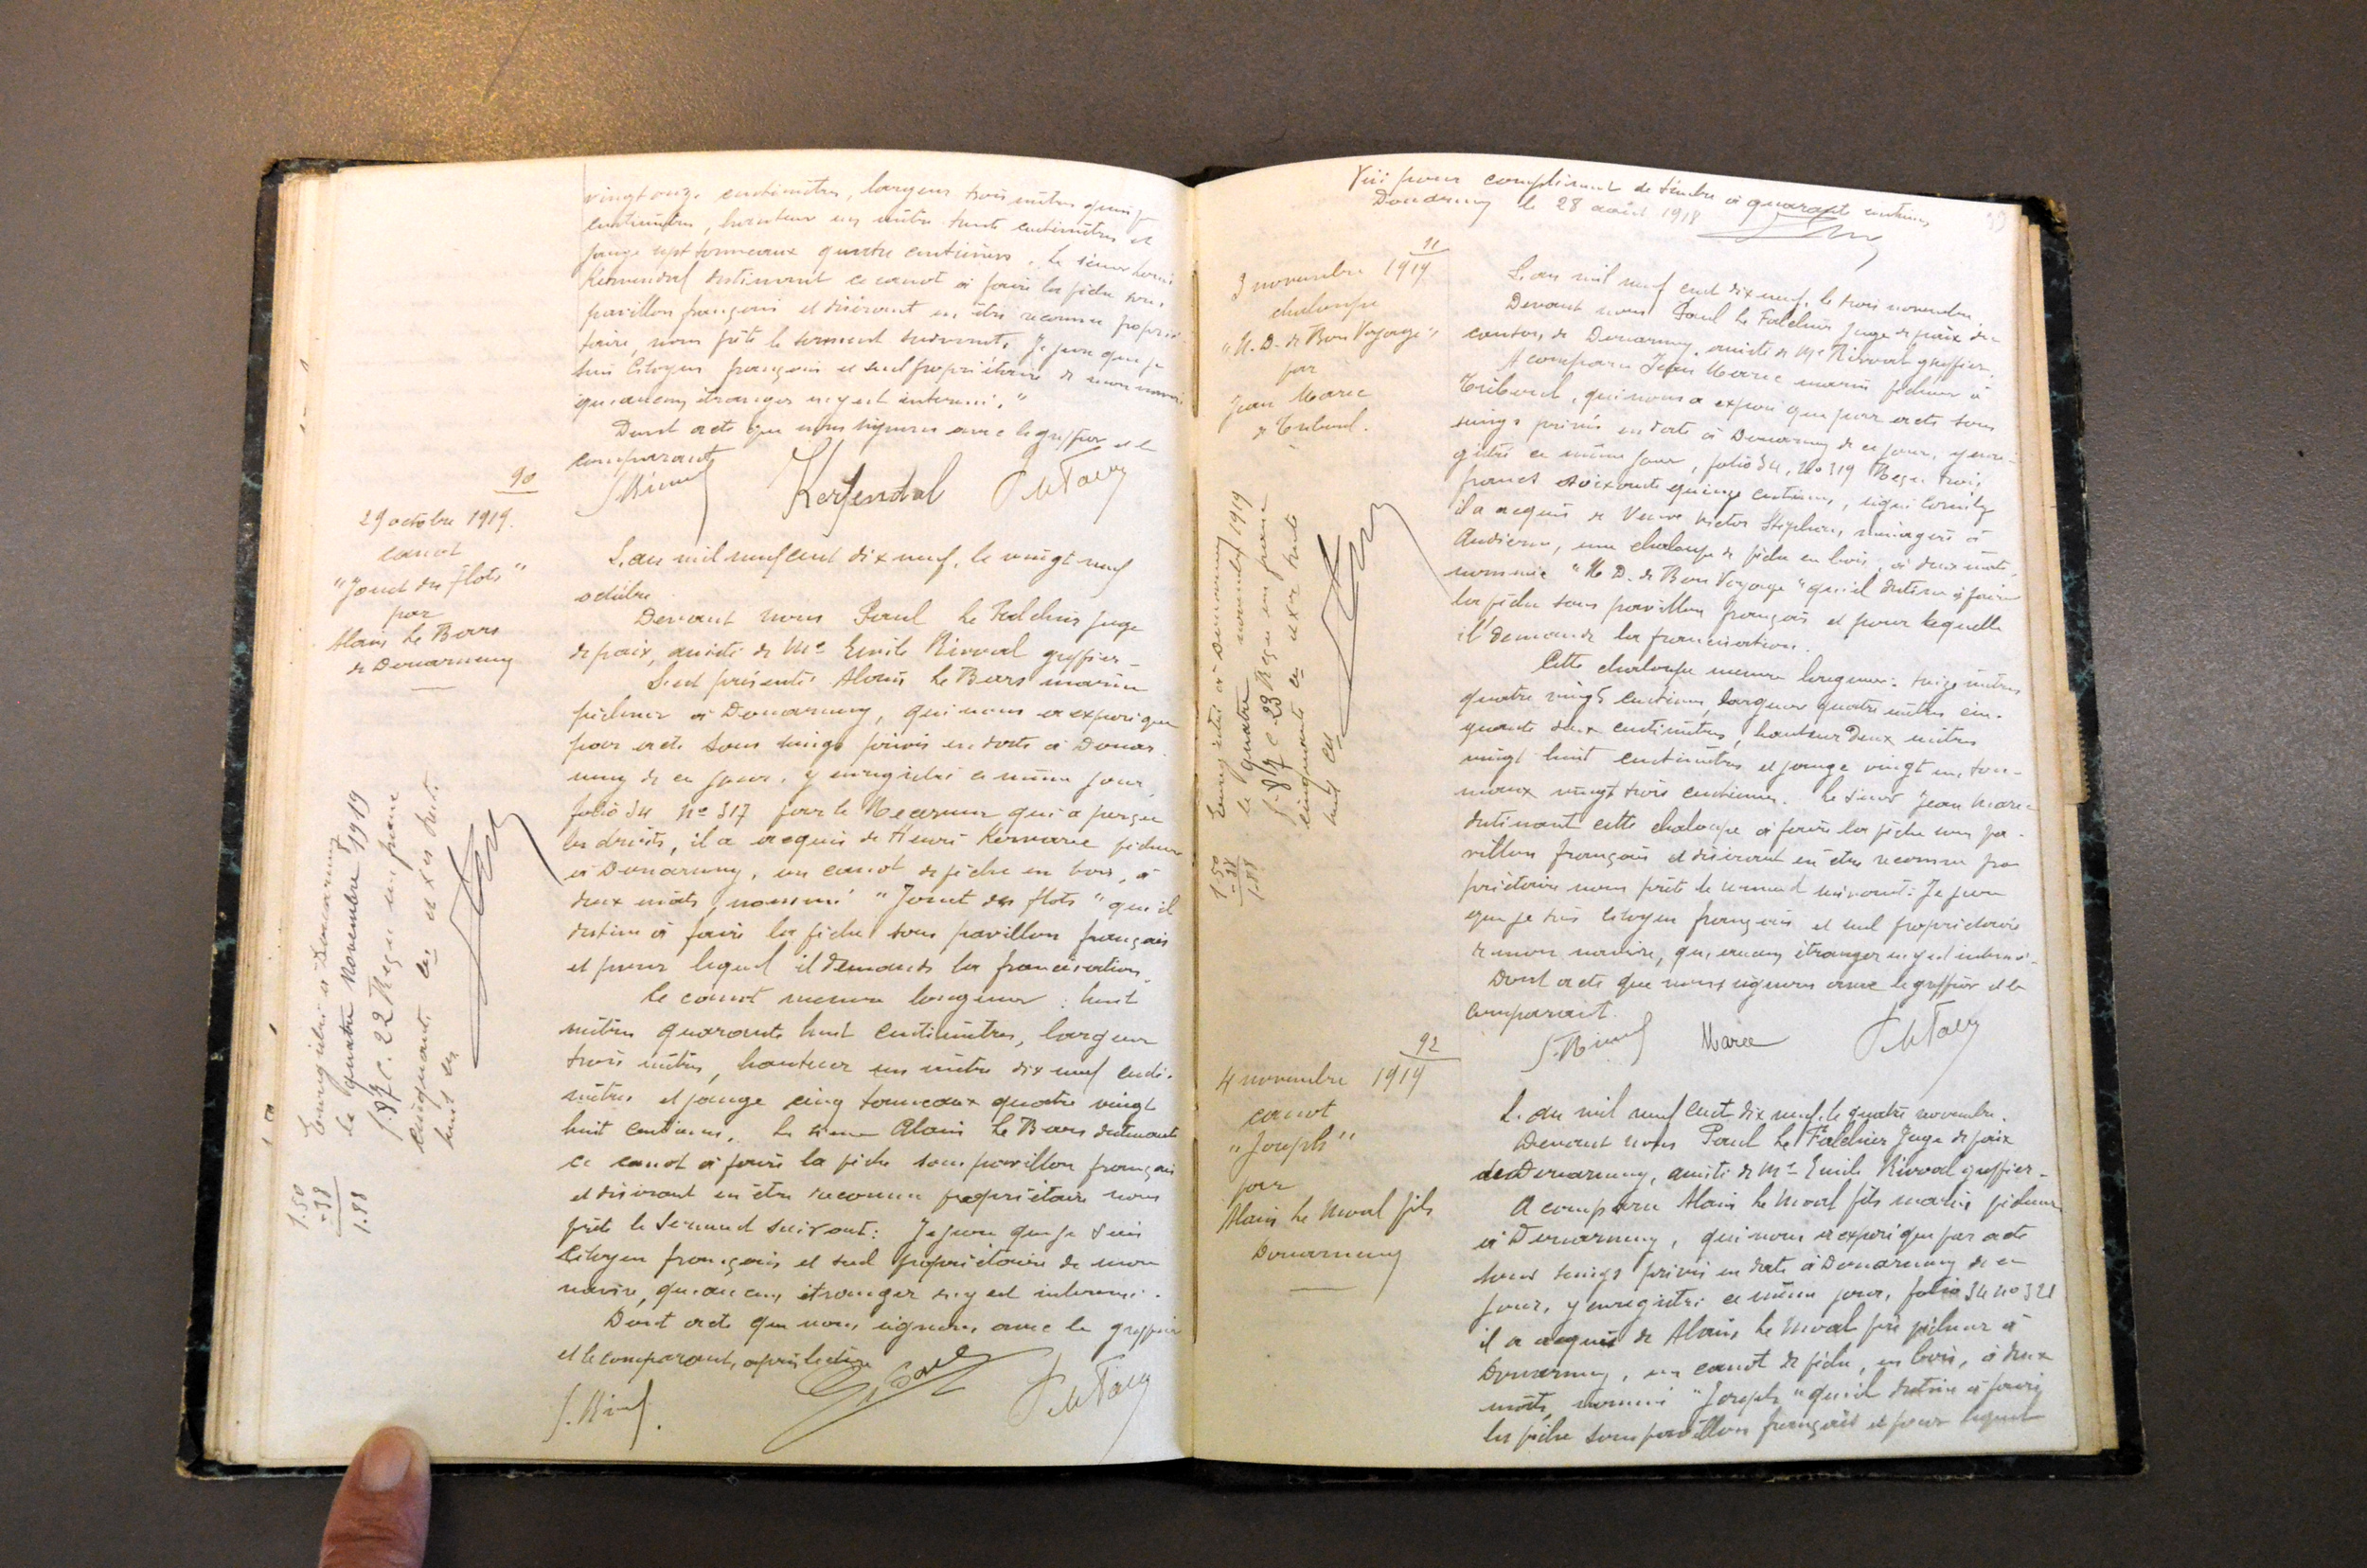 vingt onze centimètres, largeur trois mètres quinze
centimètres, hauteur un mètre trente centimètres et
jauge sept tonneaux quatre centièmes. Le sieur
destinant ce canot à faire la pêche sous
pavillon français et désirant en être reconnu proprié-
taire, nous prête le serment suivant: Je jure que je
suis Citoyen français et seul propriétaire de mon navire
qu'aucun étranger n'y est intéressé."
Dont acte que nous signons avec le greffier et le
comparant
90
29 octobre 1919.
canot
"Jouet des flots"
par
Alain Le Bars
de Douarnenez
L'an mil neuf cent dix neuf, le vingt neuf
octobre
Devant nous Paul Le Falchier Juge
de paix, assisté de Me Emile Rivoal greffier_
S'est présenté Alain Le Bars marin
pêcheur à Douarnenez, qui nous a exposé que
par acte sous seings privés en date à Douar-
nenez de ce jour, y enregistré ce même jour,
folio 34 No 317 par le Receveur qui a perçu
les droits, il a acquis de Henri Kervarec pêcheur
à Douarnenez, un canot de pêche en bois, à
deux mâts, nommé "Jouet des flots" qu'il
destine à faire la pêche sous pavillon français
et pour lequel il demande la francisation.
Le canot mesure longueur: huit
mètres quarante huit centimètres, largeur
trois mètres, hauteur un mètre dix neuf centi-
mètres et jauge cinq tonneaux quatre vingt
huit centièmes. Le sieur Alain Le Bars destinant
ce canot à faire la pêche sous pavillon français
et désirant en être reconnu propriétaire nous
prête le serment suivant: Je jure que je suis
Citoyen français et seul propriétaire de mon
navire, qu'aucun étranger n'y est intéressé.
Dont acte que nous signons avec le greffier
et le comparant, après lecture
Enregistré à Douarnenez
le quatre Novembre 1919
f. 87 c. 22 Reçu un franc
cinquante ces et xes trente
huit ces
1.50
-38
1.88
Visé pour complément de timbre à quarante centimes
Douarnenez le 28 août 1918
91
3 novembre 1919
chaloupe
"N. D. de Bon Voyage"
par
Jean Marec
de Tréboul.
L'an mil neuf cent dix neuf, le trois novembre,
Devant nous Paul Le Falchier Juge de paix du
canton de Douarnenez, assisté de Me Rivoal greffier.
A comparu Jean Marec marin pêcheur à
Tréboul, qui nous a exposé que par acte sous
seings privés en date à Douarnenez de ce jour, y enre-
gistré ce même jour, folio 34, No 319 Reçu trois
francs soixante quinze centimes, signé
il a acquis de Veuve Victor Stéphan, ménagère à
Audierne, une chaloupe de pêche en bois, à deux mâts,
nommée "N. D. de Bon Voyage" qu'il destine à faire
la pêche sous pavillon français et pour laquelle
il demande la francisation.
Cette chaloupe mesure longueur: treize mètres
quatre vingt centimes, largeur quatre mètres cin-
quante deux centimètres, hauteur Deux mètres
vingt huit centimètres et jauge vingt un ton-
neaux vingt trois centièmes. Le sieur Jean Marec
destinant cette chaloupe à faire la pêche sous pa-
villon français et désirant en être reconnu pro
priétaire nous prête le serment suivant: Je jure
que je suis citoyen français et seul propriétaire
de mon navire, qu'aucun étranger n'y est intéressé.
Dont acte que nous signons avec le greffier et le
comparant.
Marec
Enregistré à Douarnenez
le quatre novembre 1919
f. 87 c. 23 Reçu un franc
cinquante ces et xes trente
huit ces
1.50
-38
1.88
92
4 novembre 1919
canot
"Joseph"
par
Alain Le Moal fils
Douarnenez
L'an mil neuf cent dix neuf, le quatre novembre.
Devant nous Paul Le Falchier Juge de paix
de Douarnenez, assisté de Me Emile Rivoal greffier_
A comparu Alain Le Moal fils marin pêcheur
à Douarnenez, qui nous a exposé que par acte
sous seings privés en date à Douarnenez de ce
jour, y enregistré ce même jour, folio 34 no 321
il a acquis de Alain Le Moal père pêcheur à
Douarnenez, un canot de pêche, en bois, à deux
mâts, nommé "Joseph" qu'il destine à faire
la pêche sous pavillon français et pour lequel